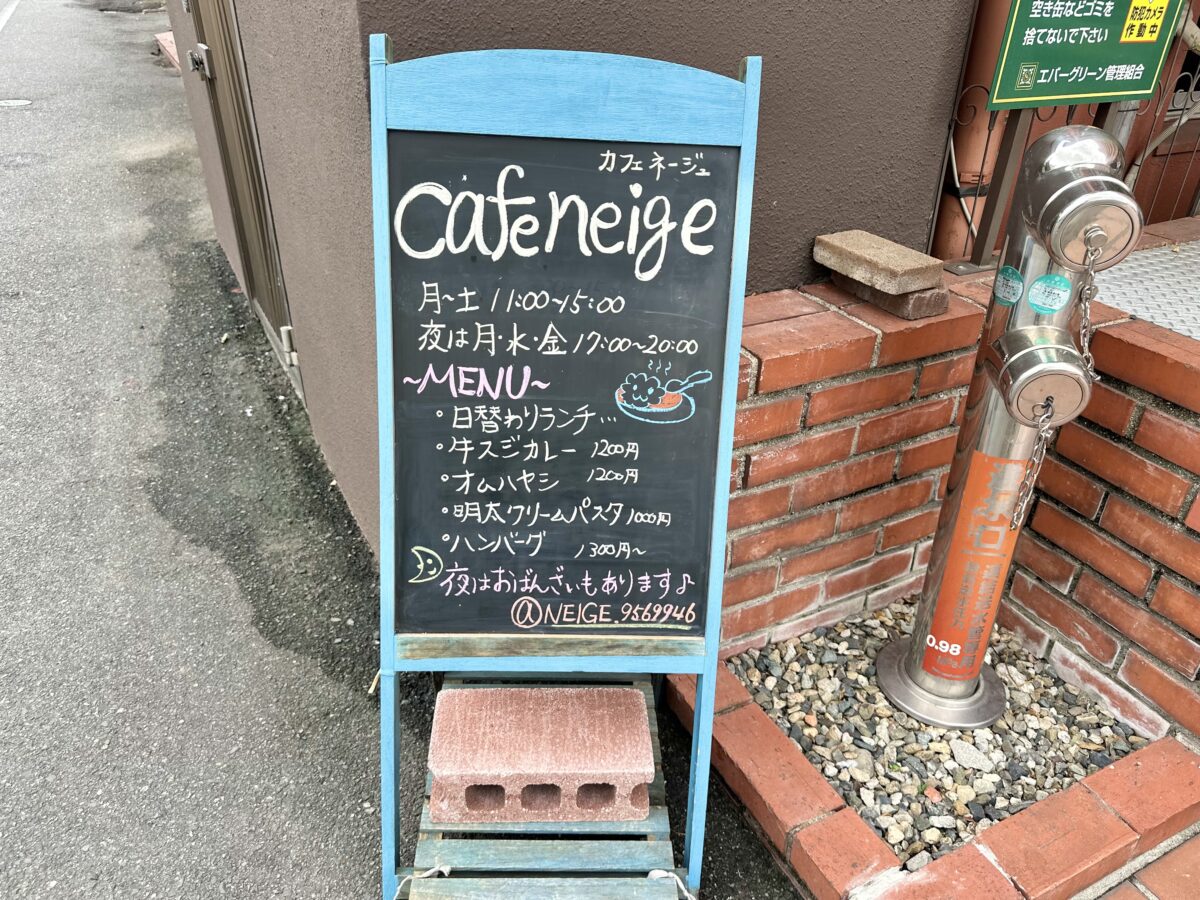 カフェ ネージュ
cafe neige
月~土 11:00~15:00
夜は月・水・金 17:00~20:00
~MENU~
・日替わりランチ…
・牛スジカレー 1200円
・オムハヤシ 1200円
・明太クリームパスタ 1000円
・ハンバーグ 1300円~
夜はおばんざいもあります♪
@NEIGE.9569946
空き缶などゴミを
捨てないで下さい
防犯カメラ
作動中
エバーグリーン管理組合
送水口
0.98